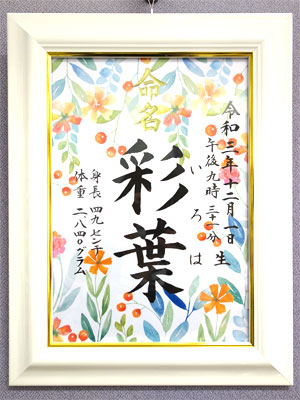 令和三年十二月一日
午後九時三十一分 生
いろは
命名
彩葉
身長 四九センチ
体重 二、八四〇グラム